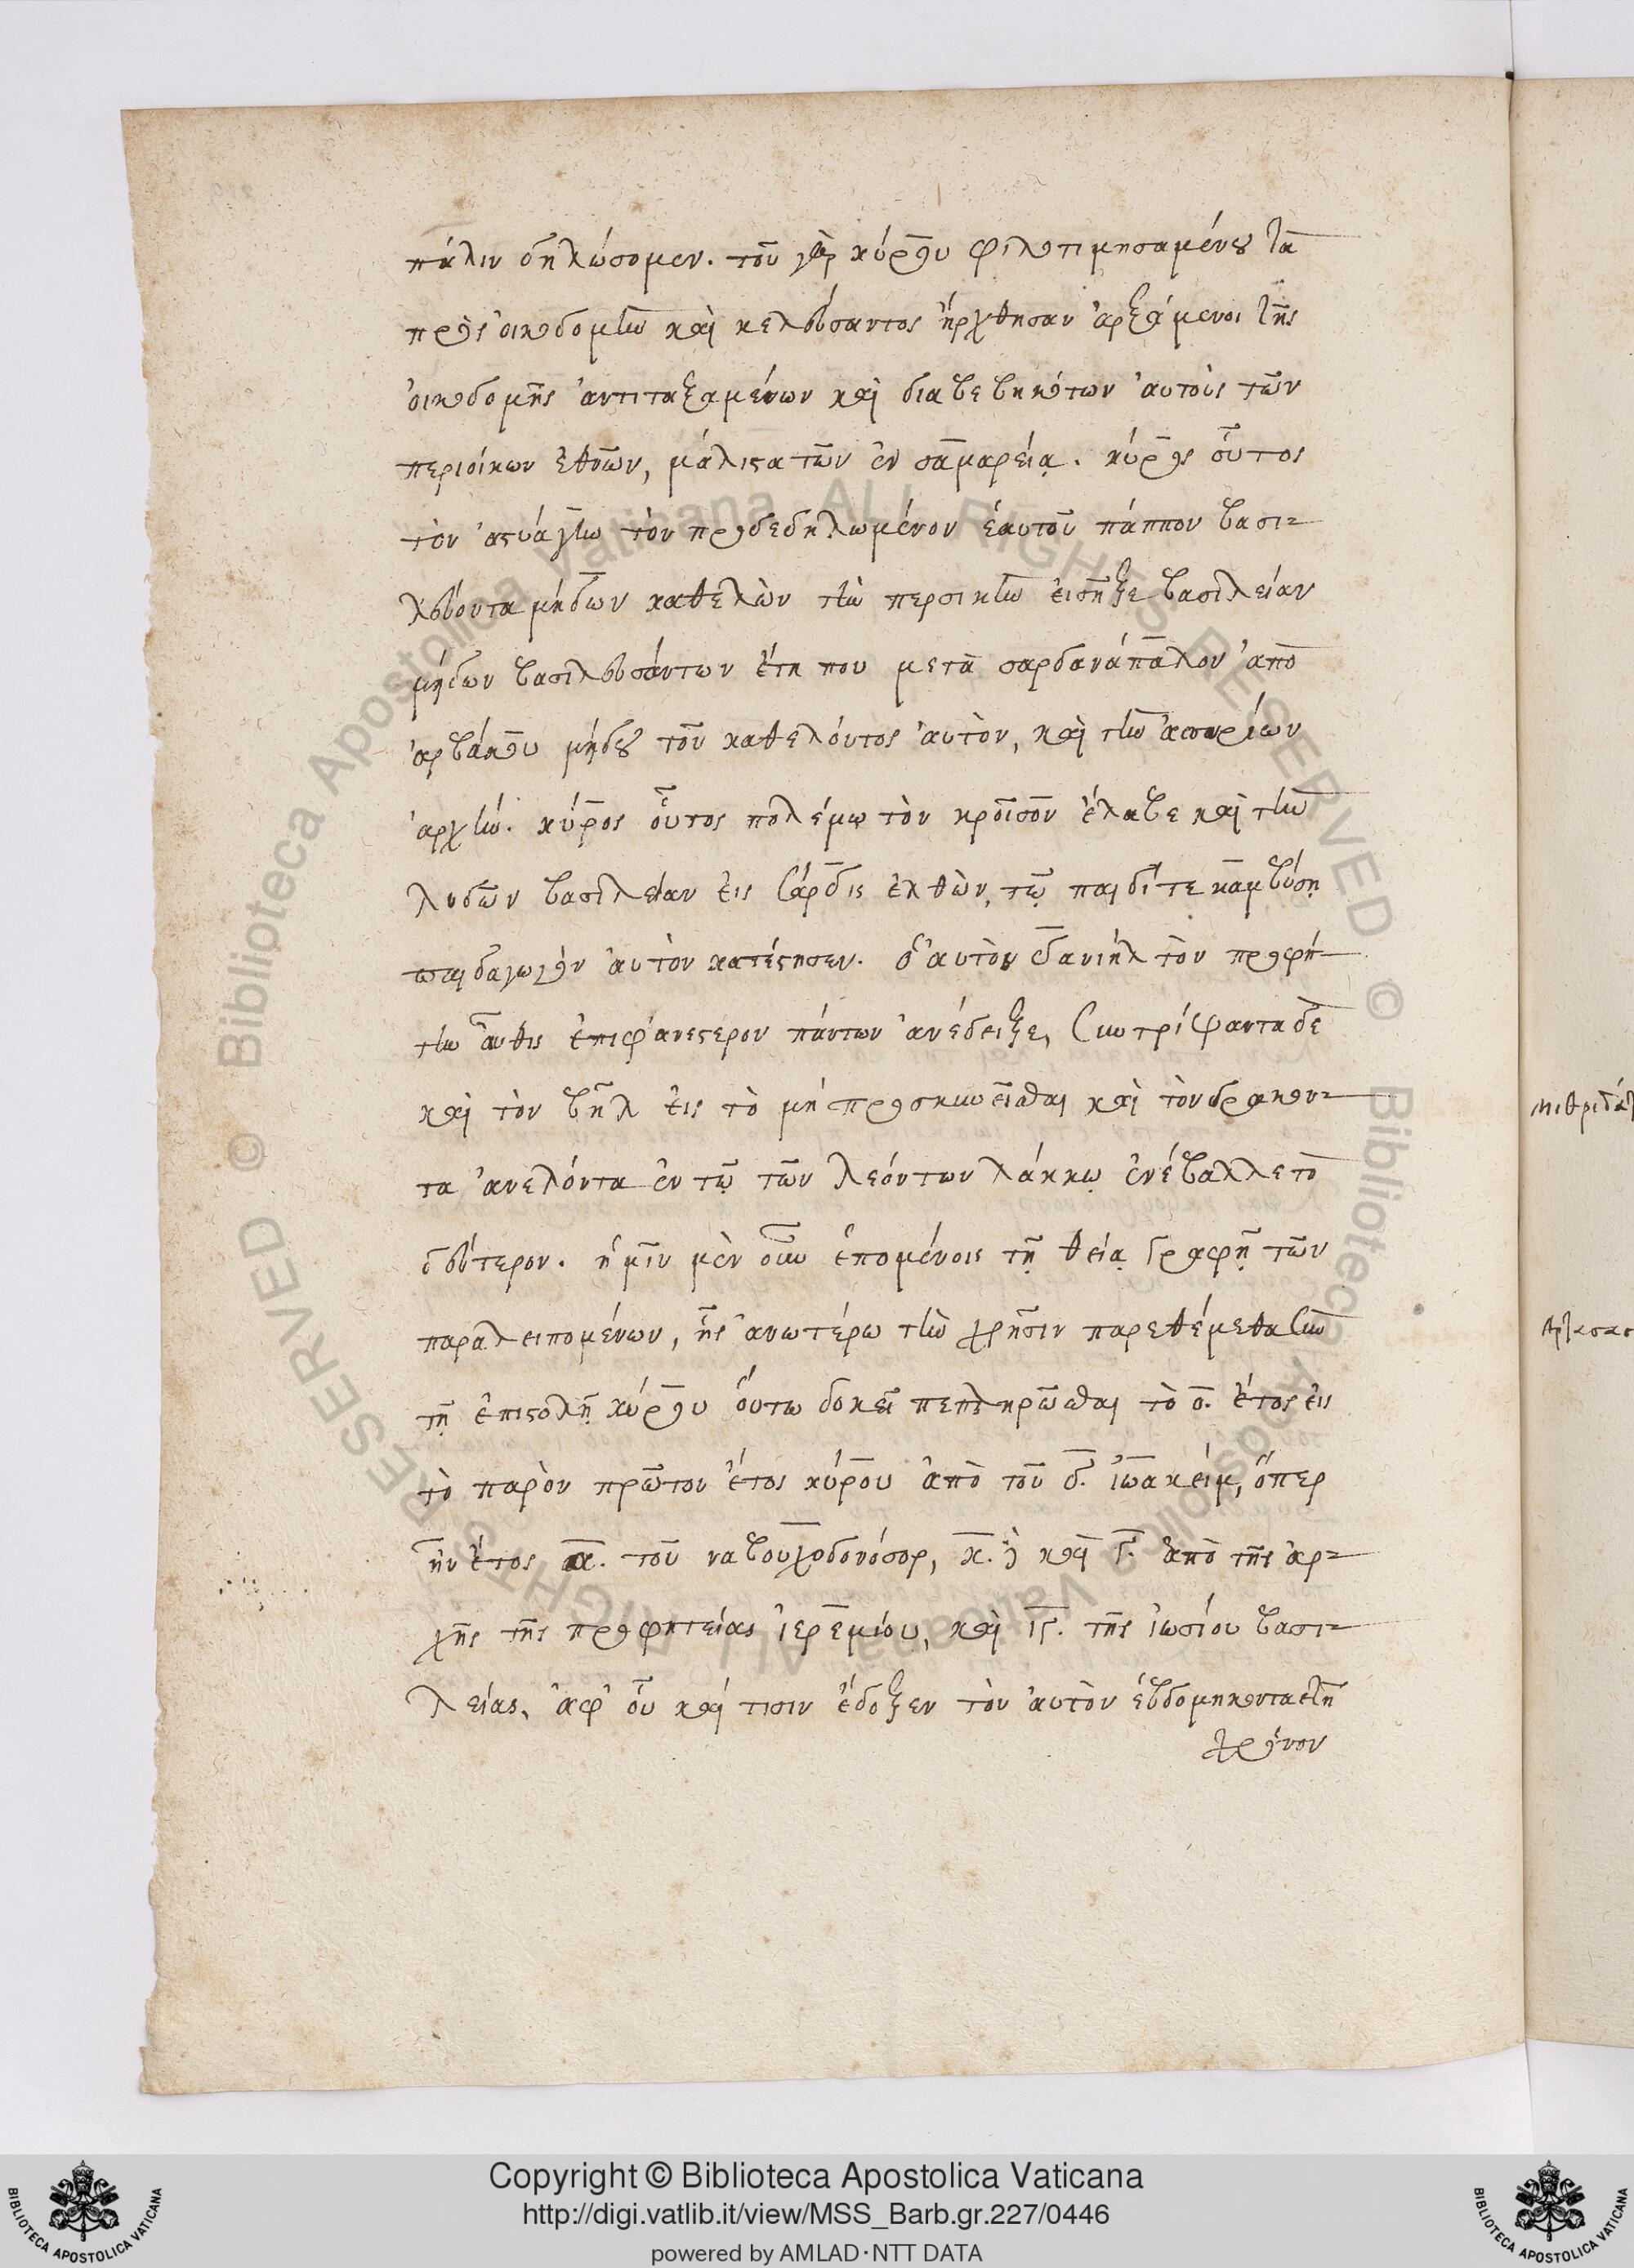 πάλιν δηλώσομεν. τοῦ γὰρ κύρου φιλοτιμησαμένου τὰ
πρὸς οἰκοδομὴν καὶ κελεύσαντος ἤρχθησαν ἀρξάμενοι τῆς
οἰκοδομῆς ἀντιταξαμένων καὶ διαβεβηκότων αὐτοὺς τῶν
περιοίκων ἐθνῶν, μάλιστα τῶν ἐν σαμαρείᾳ. κύρος οὗτος
τὸν ἀστυάγην τὸν προδεδηλωμένον ἑαυτοῦ πάππον βασι-
λεύοντα μήδων καθελὼν τὴν περσικὴν εἰσῆξε βασιλείαν
μήδων βασιλευσάντων ἔτη που μετὰ σαρδανάπαλον ἀπὸ
ἀρβάκου μήδου τοῦ καθελόντος αὐτὸν, καὶ τὴν ἀσσυρίων
ἀρχήν. κύρος οὗτος πολέμῳ τὸν κροῖσον ἔλαβε καὶ τὴν
λυδῶν βασιλείαν εἰς σάρδις ἐλθὼν, τῷ παιδί τε καμβύσῃ
παιδαγωγὸν αὐτὸν κατέστησεν. ὁ αὐτὸς δανιὴλ τὸν προφή-
την αὖθις ἐπιφανέστερον πάντων ἀνέδειξε, συντρίψαντα δὲ
καὶ τὸν βὴλ εἰς τὸ μὴ προσκυνεῖσθαι καὶ τὸν δρακον-
τα ἀνελόντα ἐν τῷ τῶν λεόντων λάκκῳ ἐνέβαλλε τὸ
δεύτερον. ἡμῖν μὲν οὖν ἑπομένοις τῇ θείᾳ γραφῇ τῶν
παραλειπομένων, ἧς ἀνωτέρω τὴν χρῆσιν παρεθέμεθα σὺν
τῇ ἐπιστολῇ κύρου οὕτω δοκεῖ πεπληρῶσθαι τὸ ο. ἔτος εἰς
τὸ παρὸν πρῶτον ἔτος κύρου ἀπὸ τοῦ δ. ἰωακείμ, ὅπερ
ἦν ἔτος α. τοῦ ναβουχοδονόσορ, κ. καὶ ἀπὸ τῆς ἀρ-
χῆς τῆς προφητείας ἱερεμίου, καὶ ιγ. τῆς ἰωσίου βασι-
λείας, ἀφ' οὗ καί τισιν ἔδοξεν τὸν αὐτὸν ἑβδομηκονταετῆ
χρόνον
Copyright © Biblioteca Apostolica Vaticana
http://digi.vatlib.it/view/MSS_Barb.gr.227/0446
powered by AMLAD·NTT DATA